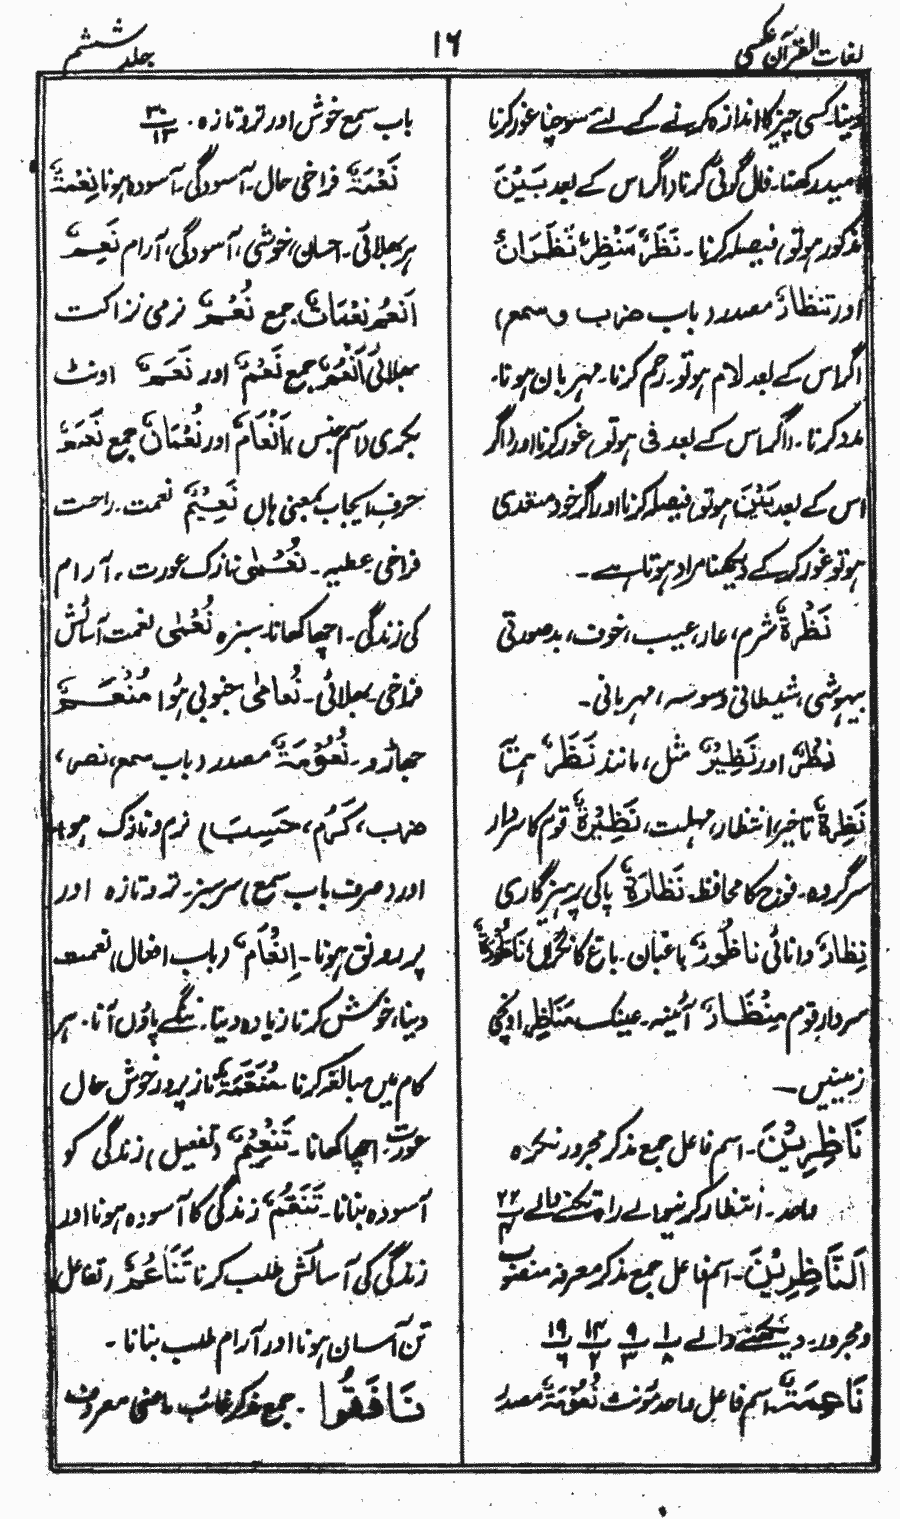 لغات القرآن عکسی
۱۶
جلد ششم
دینا، کسی چیز کا اندازہ کرنے کے لئے سوچنا غور کرنا
امید رکھنا۔ فال گوئی کرنا داگر اس کے بعد بَیْنَ
مذکور ہو تو) فیصلہ کرنا۔ نَظَرٌ مَنْظَرٌ نَظَرَانٌ
اور تنظارٌ مصدر، باب ضرب و سمع)
اگر اس کے بعد لام ہو تو۔ رحم کرنا۔ مہربان ہونا۔
مدد کرنا۔ داگر اس کے بعد فی ہو تو) غور کرنا اور داگر
اس کے بعد بَیْنَ ہو تو) فیصلہ کرنا اور اگر خود متعدی
ہو تو غور کر کے دیکھنا مراد ہوتا ہے۔
نَظْرَةٌ شرم، عار، عیب، خوف، بدصورتی
بیہوشی، شیطانی وسوسہ، مہربانی۔
نِظْرٌ اور نَظِیْرٌ مثل، مانند نَظَرٌ ہمتا
نَظِرَةٌ تاخیر، انتظار، مہلت، نَظِیْرَةٌ قوم کا سردار
سرگروہ۔ فوج کا محافظ۔ نَظَارَةٌ پاکی پرہیزگاری
نِظَارٌ دانائی نَاظُوْرٌ باغبان۔ باغ کا نگراں نَاظُوْرَةٌ
سردار قوم مِنْظَارٌ آئینہ۔ عینک مَنَاظِر اونچی
زمینیں۔
نَاظِرِیْنَ۔ اسم فاعل جمع مذکر مجرور نکرہ
واحد۔ انتظار کرنیوالے راہ تکنے والے ۲۲/۴
اَلنَّاظِرِیْنَ۔ اسم فاعل جمع مذکر معرفہ منصوب
و مجرور۔ دیکھنے والے ۱/۸ ۹/۳ ۱۴/۲ ۱۹/۶
نَاعِمَةٌ اسم فاعل واحد مؤنث نُعُوْمَةٌ مصدر
باب سمع خوش اور تر و تازہ۔ ۳۰/۱۳
نَعْمَةٌ فراخی حال۔ آسودگی۔ آسودہ ہونا نِعْمَةٌ
ہر بھلائی۔ احسان، خوشی، آسودگی، آرام نِعَمٌ
اَنْعُمٌ نِعْمَاتٌ جمع نُعُمٌ نرمی نزاکت
بھلائی اَنْعُمٌ جمع نَعَمٌ اور نَعَمٌ اونٹ
بکری (اسم جنس) اَنْعَامٌ اور نُعْمَانٌ جمع نَعَمْ
حرف ایجاب بمعنی ہاں نَعِیْمٌ نعمت۔ راحت
فراخی عطیہ۔ نُعْمٰی نازک عورت۔ آرام
کی زندگی۔ اچھا کھانا۔ سبزہ نُعْمٰی نعمت آسائش
فراخی۔ بھلائی۔ نُعَامٰی جنوبی ہَوا مِنْعَمٌ
جھاڑو۔ نُعُوْمَةٌ مصدر (باب سمع، نصر،
ضرب، کَرُمَ، حَسِبَ) نرم و نازک ہونا
اور (صرف باب سمع) سرسبز۔ تر و تازہ اور
پُر رونق ہونا۔ اِنْعَامٌ (باب افعال) نعمت
دینا، خوش کرنا زیادہ دینا۔ ننگے پاؤں آنا۔ ہر
کام میں مبالغہ کرنا۔ مُنَعَّمَةٌ ناز پرور خوش حال
عورت۔ اچھا کھانا۔ تَنْعِیْمٌ (تفعیل) زندگی کو
آسودہ بنانا۔ تَنَعُّمٌ زندگی کا آسودہ ہونا اور
زندگی کی آسائش طلب کرنا تَنَاعُمٌ (تفاعل)
تن آسان ہونا اور آرام طلب بنانا۔
نَافَقُوا۔ جمع مذکر غائب ماضی معروف